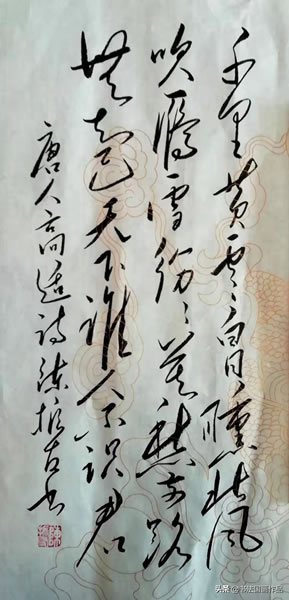 千里黄云白日曛北风
吹鴈雪纷〻莫愁前路
無知己天下谁人不识君
唐人高适诗
头条